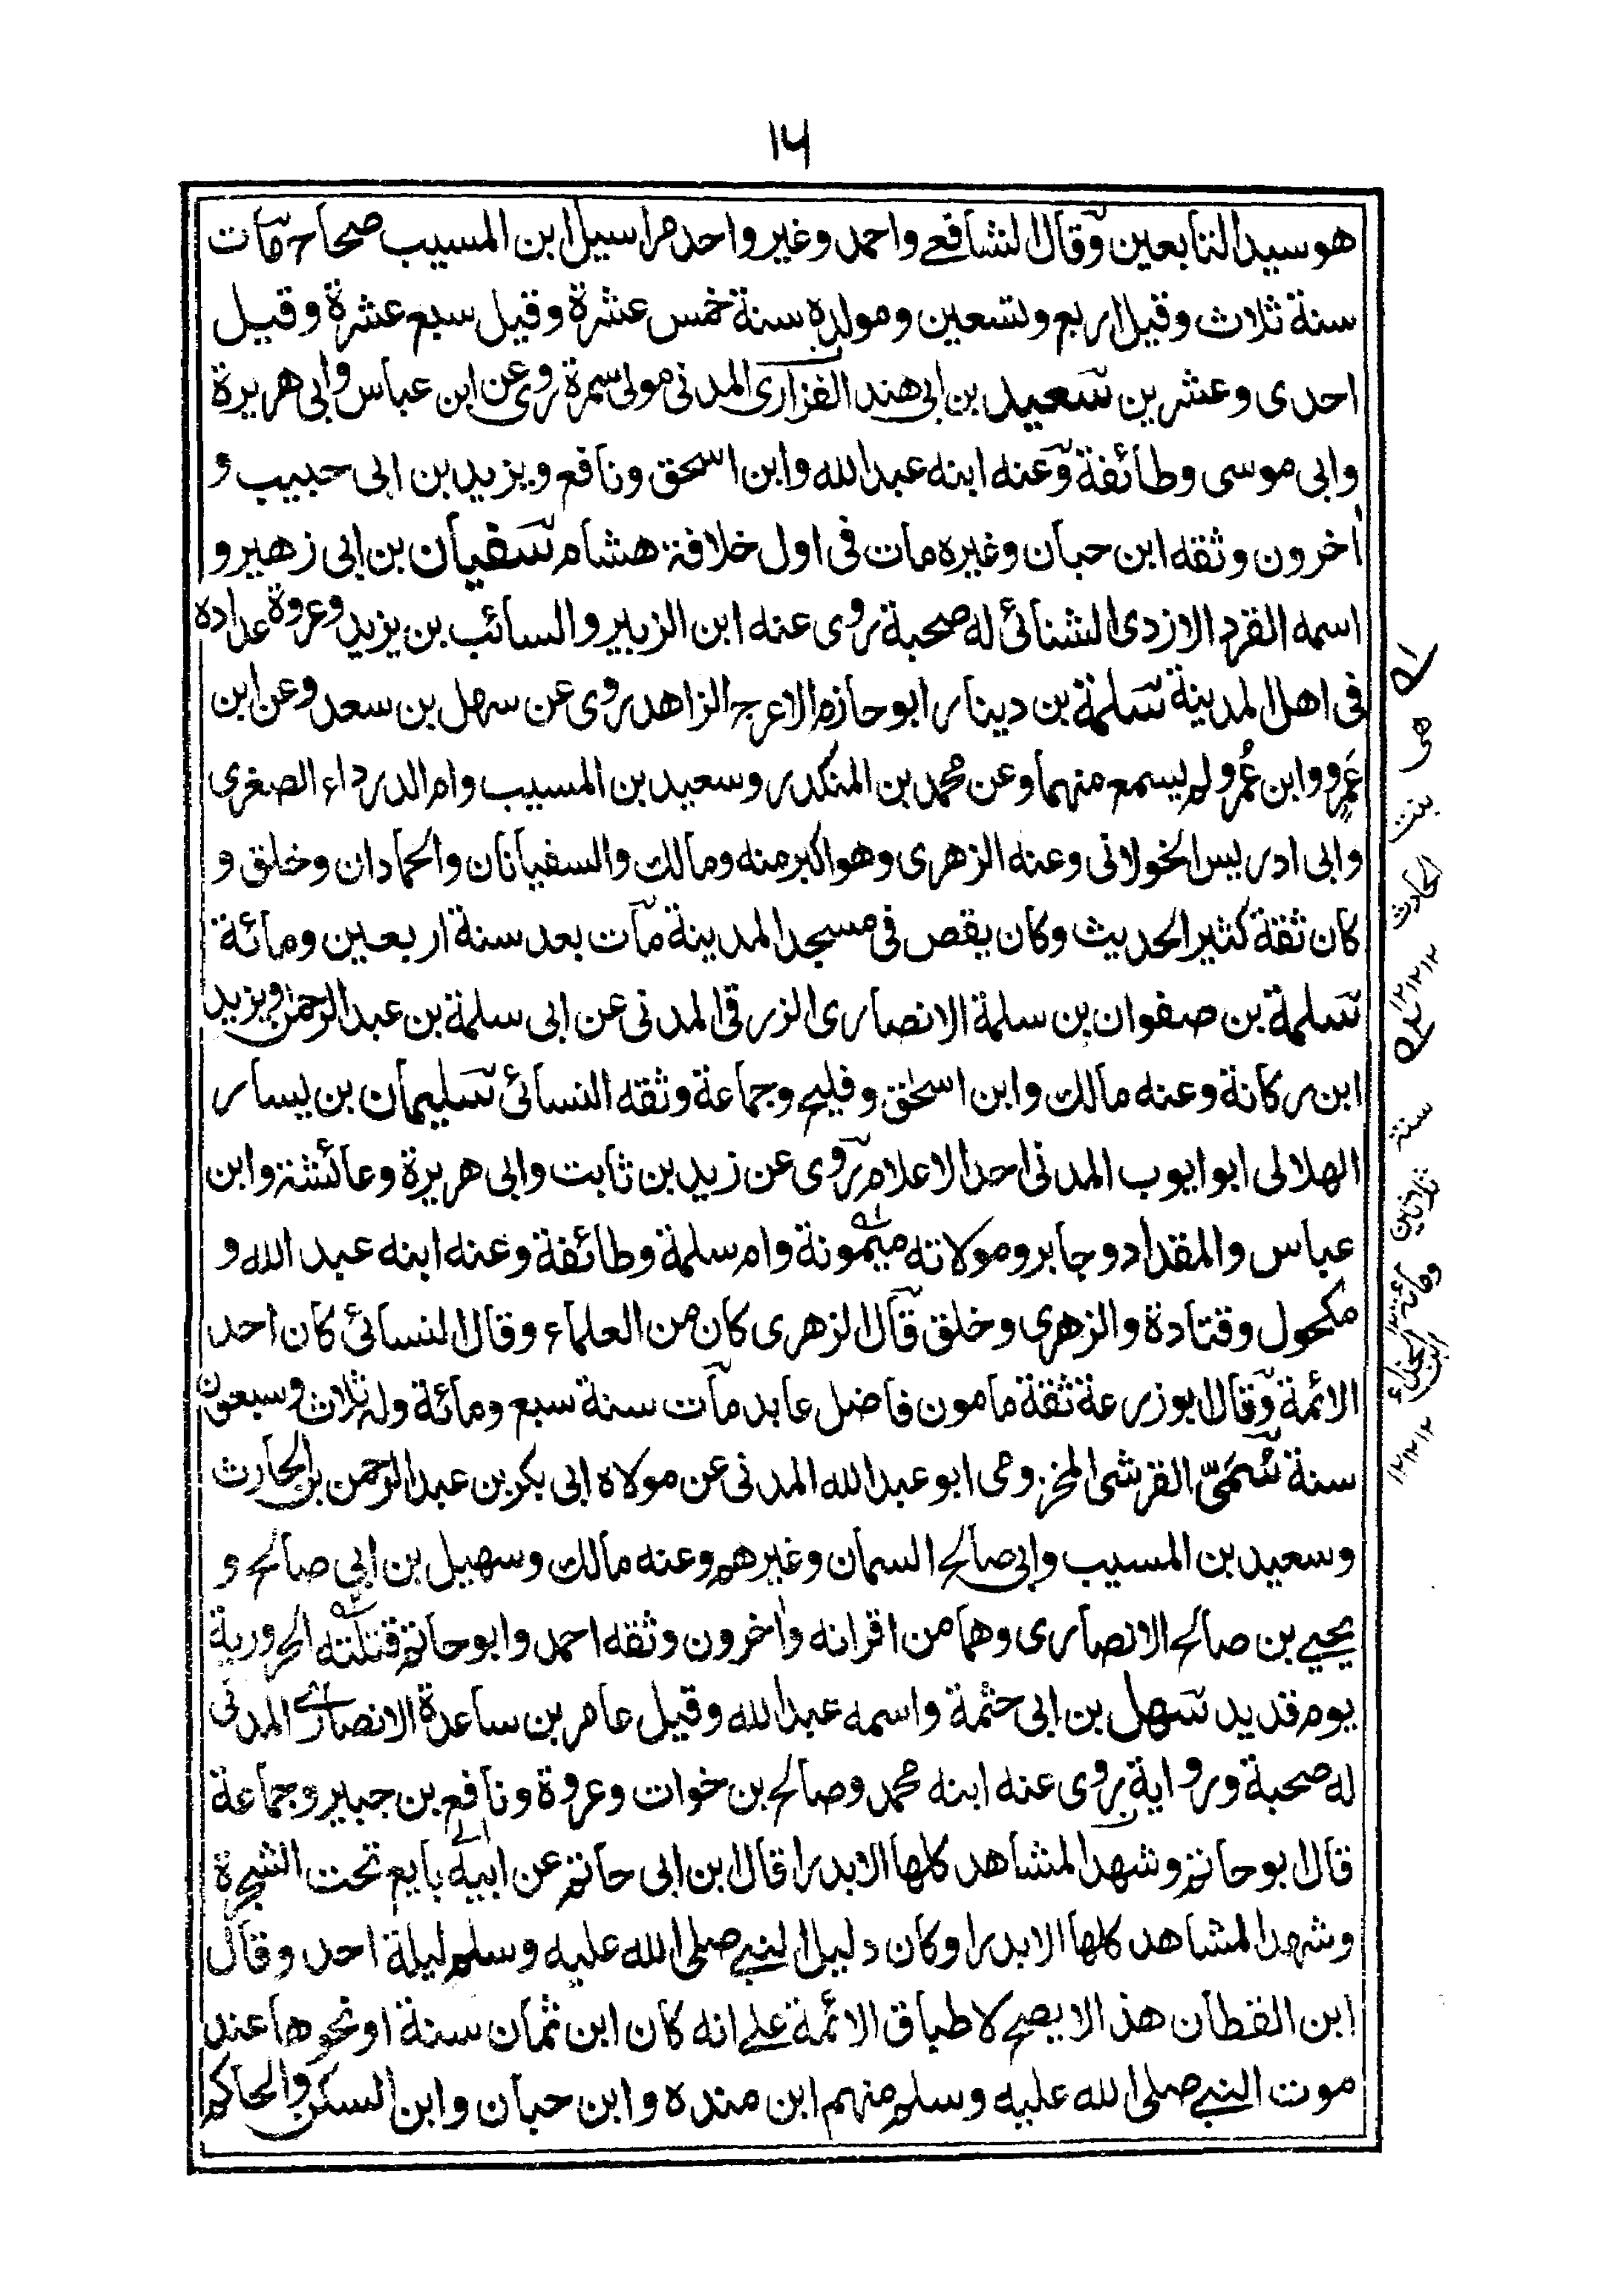 ١٦
هو سيد التابعين وقال الشافعے واحمد وغير واحد مراسيل ابن المسيب صحاح مات
سنة ثلاث وقيل اربع وتسعين ومولده سنة خمس عشرة وقيل سبع عشرة وقيل
احدى وعشرين سعيد بن ابى هند الفزارى المدنى مولى سمرة روى عن ابن عباس وابى هريرة
وابى موسى وطائفة وعنه ابنه عبد الله وابن اسحق ونافع ويزيد بن ابى حبيب و
أخرون وثقه ابن حبان وغيره مات فى اول خلافة هشام سفيان بن ابى زهير و
اسمه القرد الازدى الشنائى له صحبة روى عنه ابن الزبير والسائب بن يزيد وعروة عداده
فى اهل المدينة سلمة بن دينار ابو حازم الاعرج الزاهد روى عن سهل بن سعد وعن ابن
عَمرو وابن عُمر ولم يسمع منهما وعن محمد بن المنكدر وسعيد بن المسيب وام الدرداء الصغرى
وابى ادريس الخولانى وعنه الزهرى وهو اكبر منه ومالك والسفيانان والحمادان وخلق و
كان ثقة كثير الحديث وكان يقص فى مسجد المدينة مات بعد سنة اربعين ومائة
سلمة بن صفوان بن سلمة الانصارى الزرقى المدنى عن ابى سلمة بن عبد الرحمن ويزيد
ابن ركانة وعنه مالك وابن اسحٰق وفليح وجماعة وثقه النسائى سليمان بن يسار
الهلالى ابو ايوب المدنى احد الاعلام روى عن زيد بن ثابت وابى هريرة وعائشة وابن
عباس والمقداد وجابر ومولاته ميمونة وام سلمة وطائفة وعنه ابنه عبد الله و
مكحول وقتادة والزهرى وخلق قال الزهرى كان من العلماء وقال النسائى كان احد
الائمة وقال ابو زرعة ثقة مامون فاضل عابد مات سنة سبع ومائة وله ثلاث وسبعون
سنة سُمَىّ القرشى المخزومى ابو عبد الله المدنى عن مولاه ابى بكر بن عبد الرحمن بن الحارث
وسعيد بن المسيب وابى صالح السمان وغيرهم وعنه مالك وسهيل بن ابى صالح و
يحيے بن صالح الانصارى وهما من اقرانه وأخرون وثقه احمد وابو حاتم قتلته الحرورية
يوم قديد سهل بن ابى حثمة واسمه عبد الله وقيل عامر بن ساعدة الانصارے المدنى
له صحبة ورواية روى عنه ابنه محمد وصالح بن خوات وعروة ونافع بن جبير وجماعة
قال ابو حاتم وشهد المشاهد كلها الا بدرا قال ابن ابى حاتم عن ابيه بايع تحت الشجرة
وشهد المشاهد كلها الا بدرا وكان دليل النبے صلى الله عليه وسلم ليلة احد وقال
ابن القطان هذا لا يصح لاطباق الائمة علے انه كان ابن ثمان سنة او نحوها عند
موت النبے صلى الله عليه وسلم منهم ابن منده وابن حبان وابن السكن والحاكم
له
هى
بنت
الحارث
١٢ ١٢ ١٢
سنة
ثلاثين
ومائة ١٢
ابن الحذاء
١٢ ١٢ ١٢